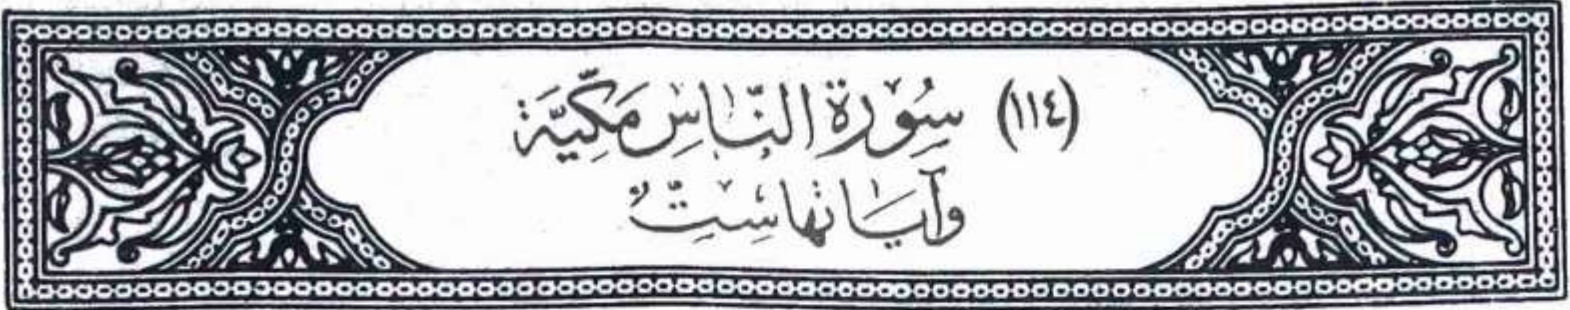 (١١٤) سُورَةُ النَّاسِ مَكِّيَّة
وَآيَاتُهَا سِتٌّ